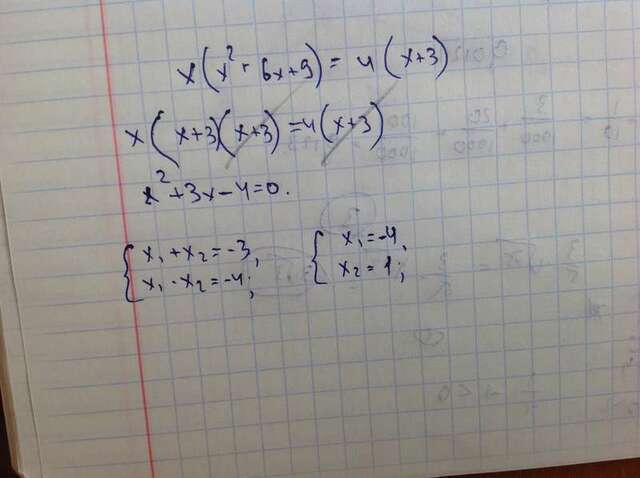 x(x² + 6x+9) = 4(x+3)
x(x+3)(x+3) = 4(x+3)
x² + 3x - 4 = 0.
x₁ + x₂ = -3, x₁ = -4,
x₁ · x₂ = -4; x₂ = 1;